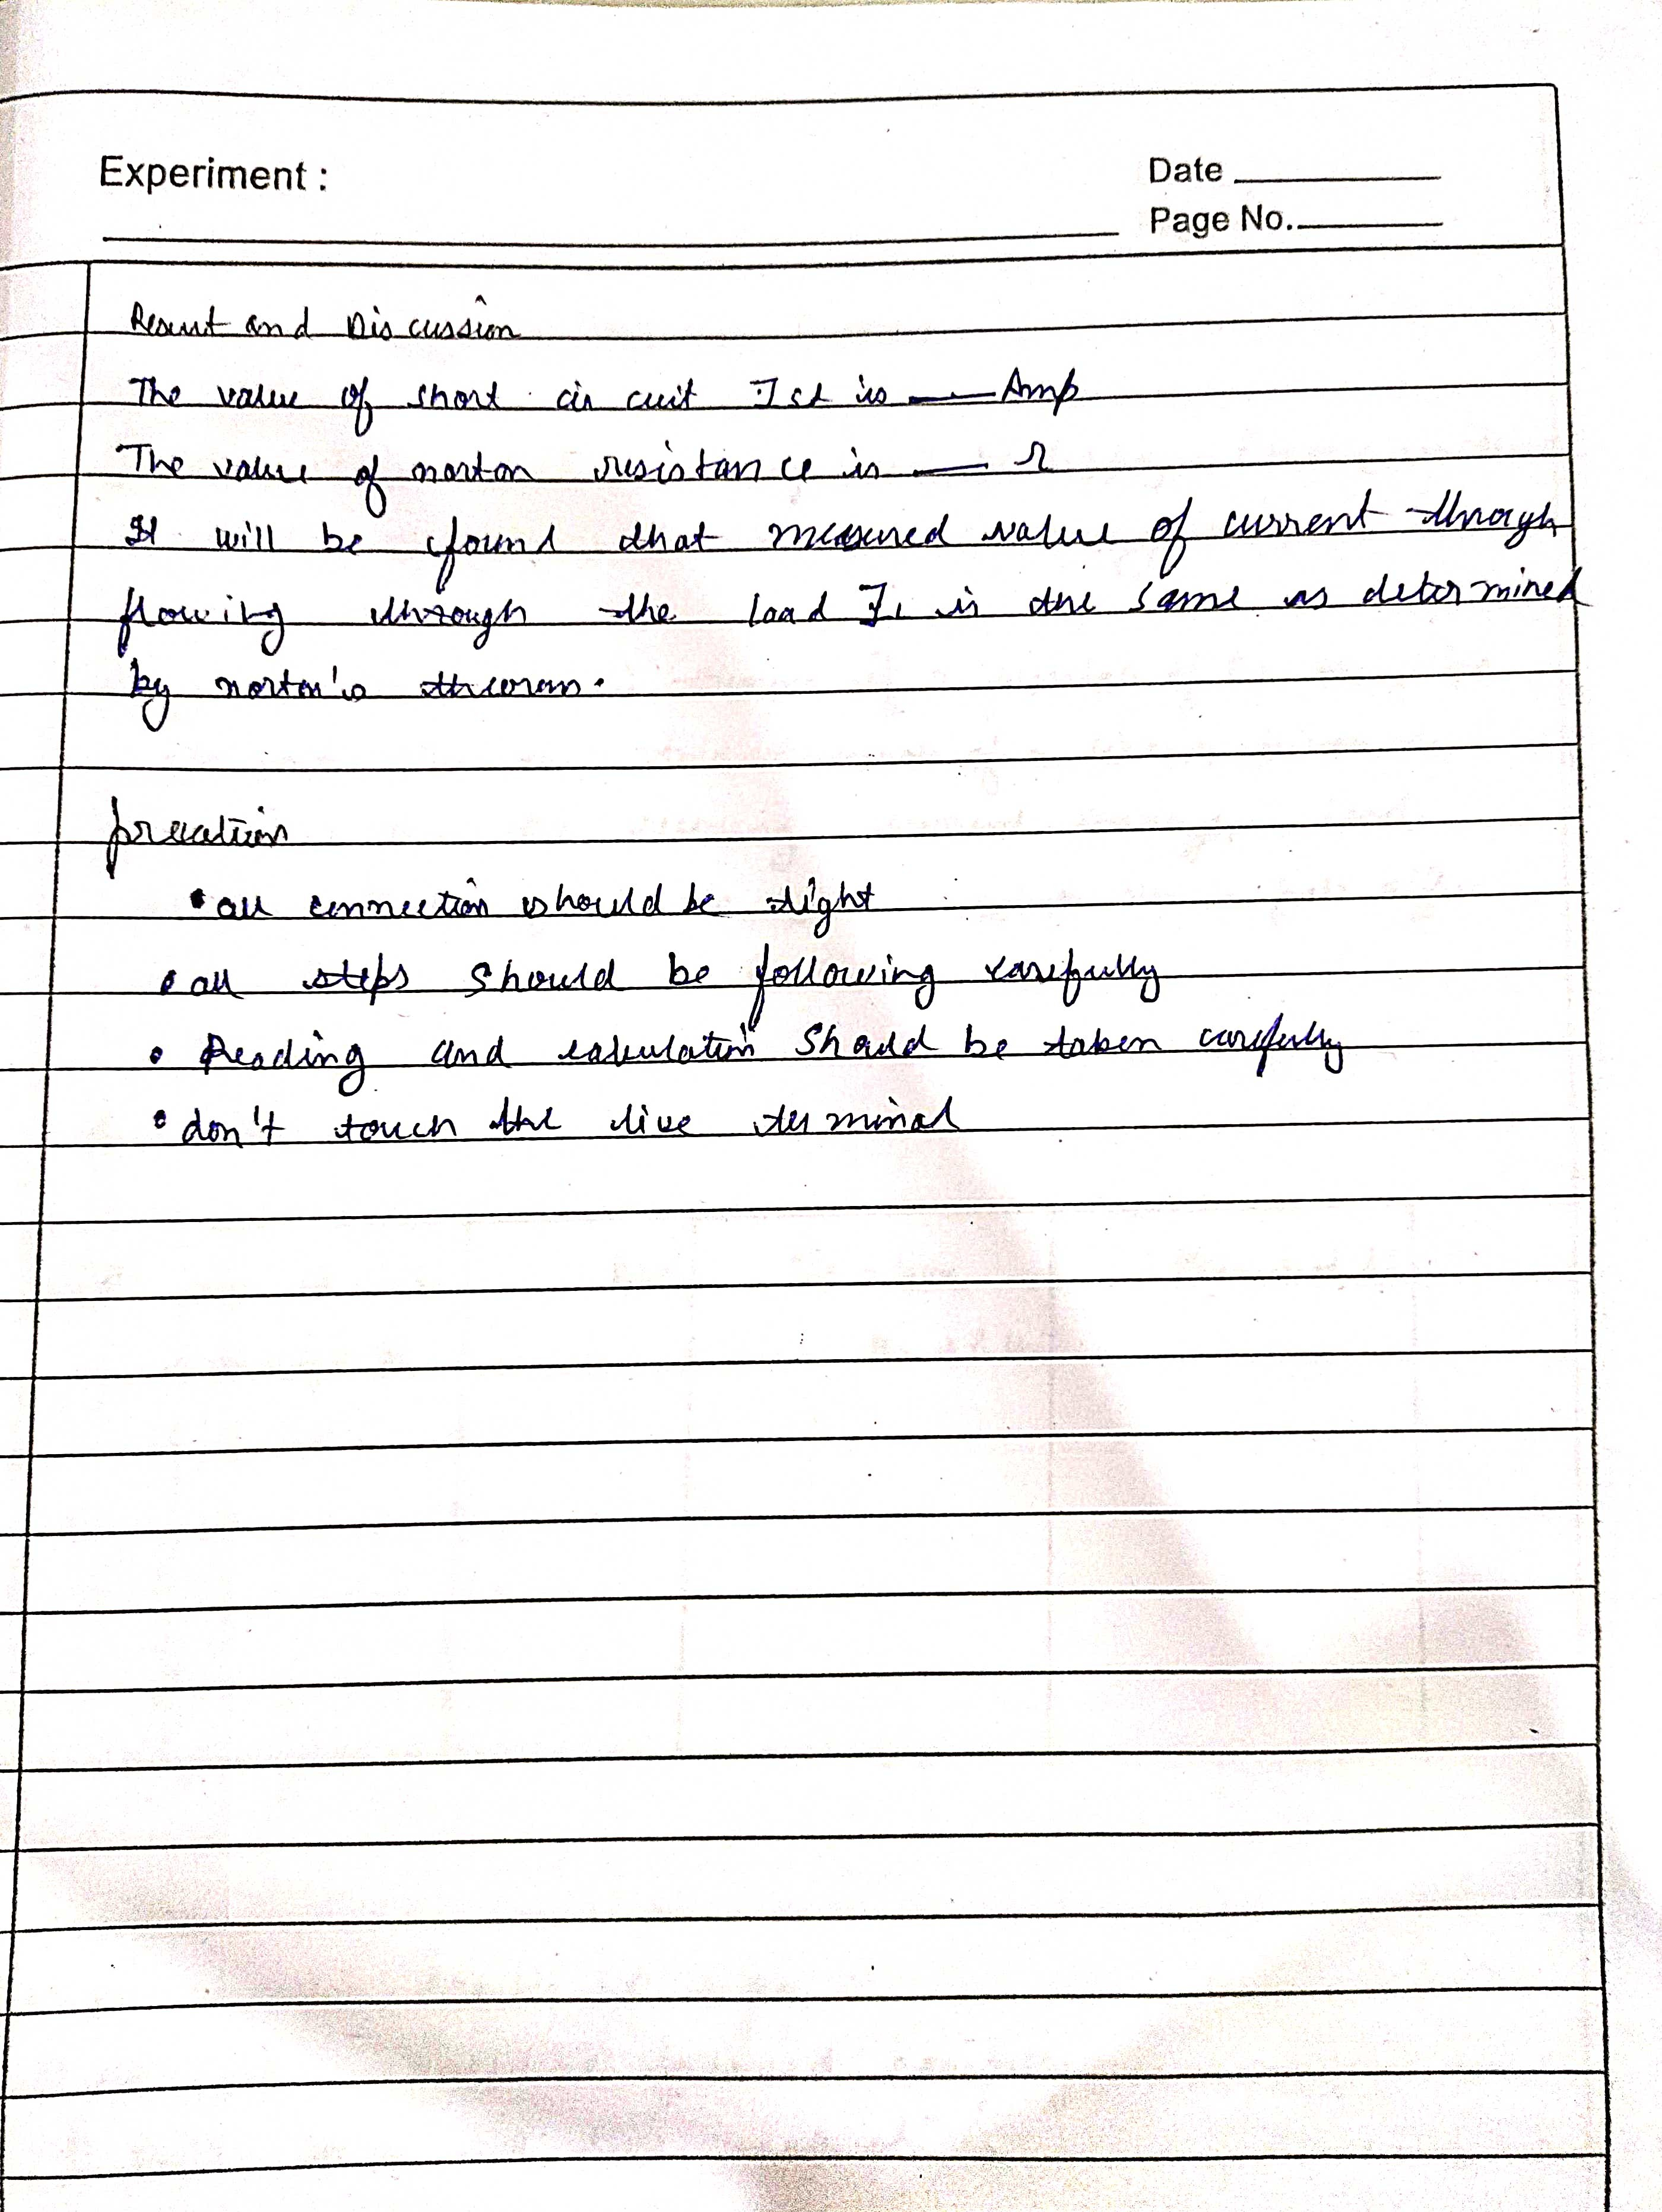 Experiment :
Date
Page No.
Result and Discussion
The value of short circuit Isc is — Amp
The value of norton resistance is — Ω
It will be found that measured value of current through
flowing through the load IL is the same as determined
by norton's theorem.
precaution
• all connection should be tight
• all steps should be following carefully
• Reading and calculation should be taken carefully
• don't touch the live terminal